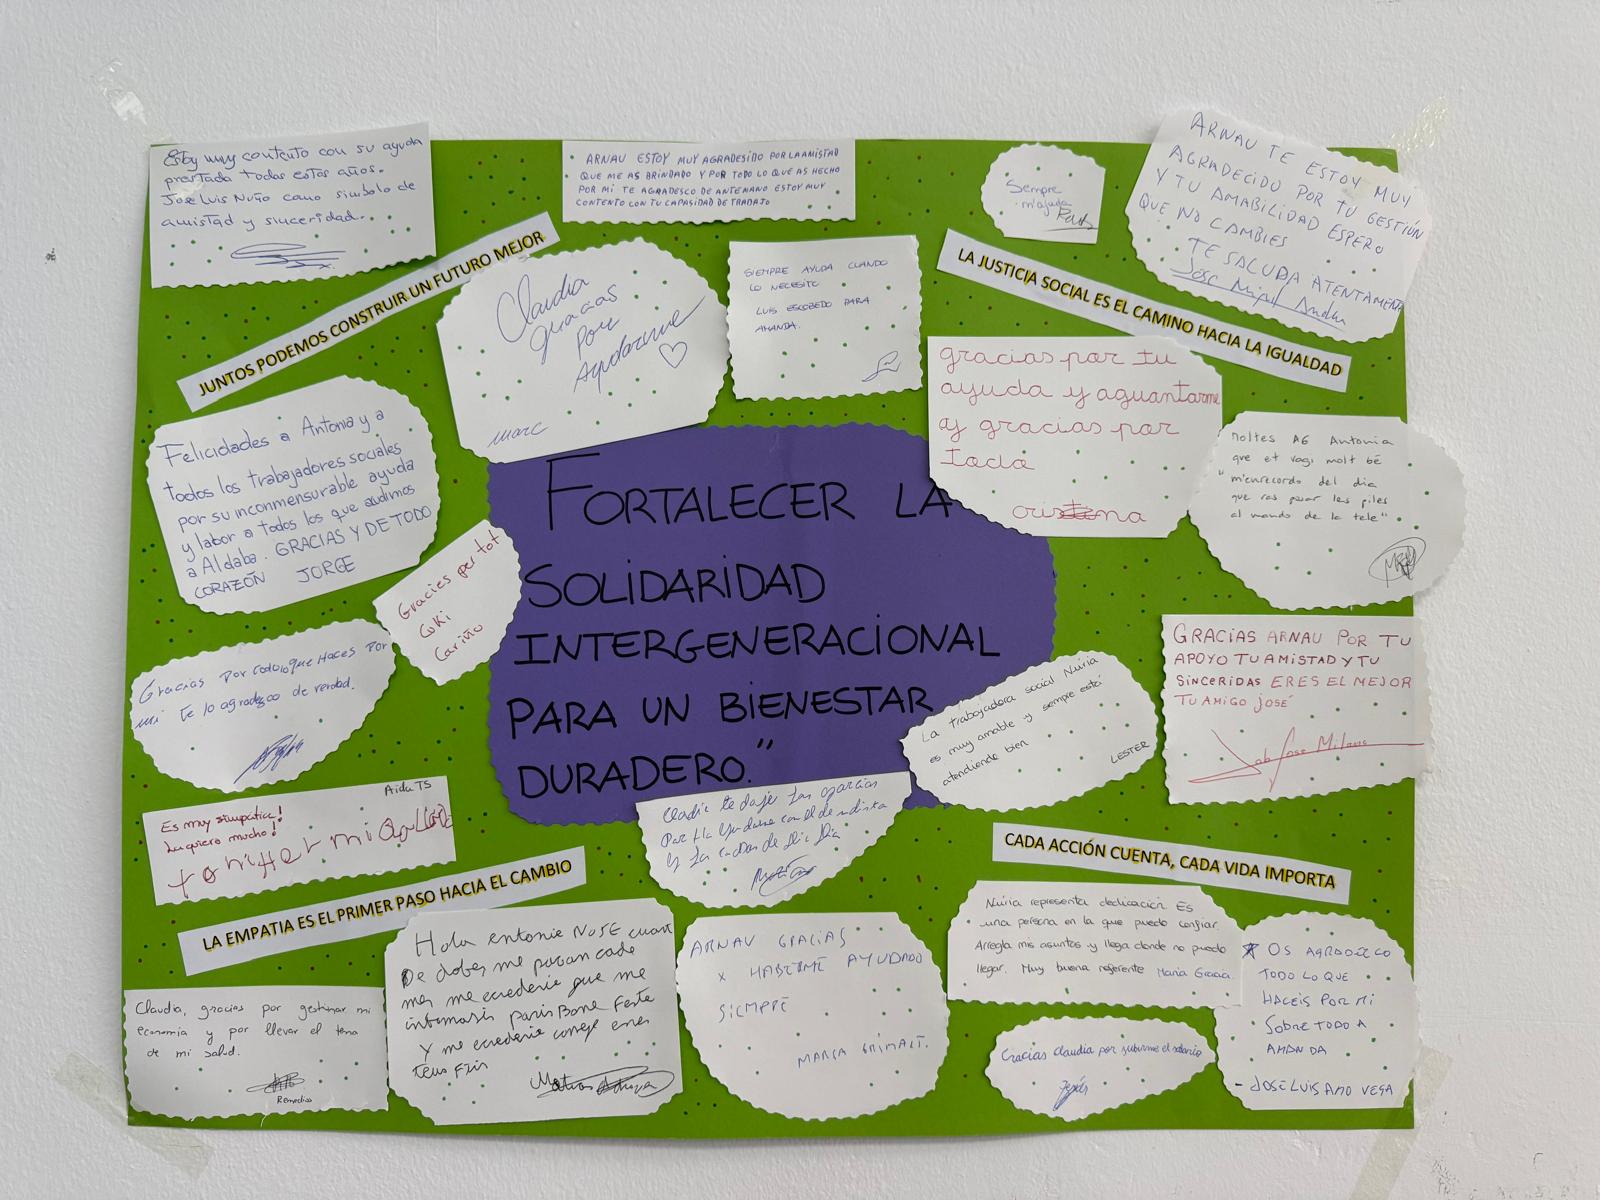 Estoy muy contento con su ayuda
prestada todos estos años.
Jose Luis Nuño como simbolo de
amistad y sinceridad.
ARNAU ESTOY MUY AGRADESIDO POR LA AMISTAD
QUE ME AS BRINDADO Y POR TODO LO QUE AS HECHO
POR MI TE AGRADESCO DE ANTEMANO ESTOY MUY
CONTENTO CON TU CAPASIDAD DE TRABAJO
Sempre
m'ajuda
ARNAU TE ESTOY MUY
AGRADECIDO POR TU GESTIÓN
Y TU AMABILIDAD ESPERO
QUE NO CAMBIES
TE SALUDA ATENTAMENTE
JUNTOS PODEMOS CONSTRUIR UN FUTURO MEJOR
Claudia
gracias
por
Ayudarme
marc
SIEMPRE AYUDA CUANDO
LO NECESITO
LUIS ESCOBEDO PARA
AMANDA.
LA JUSTICIA SOCIAL ES EL CAMINO HACIA LA IGUALDAD
gracias por tu
ayuda y aguantarme
y gracias por
todo
Felicidades a Antonia y a
todos los trabajadores sociales
por su inconmensurable ayuda
y labor a todos los que acudimos
a Aldaba. GRACIAS Y DE TODO
CORAZÓN JORGE
moltes AG Antonia
que et vagi molt bé
"mienrecordo del dia
que vas posar les piles
al mando de la tele"
Gracies per tot
Cuki
Cariño
FORTALECER LA
SOLIDARIDAD
INTERGENERACIONAL
PARA UN BIENESTAR
DURADERO."
Gracias Por todo lo que Haces Por
mi te lo agradezco de verdad.
La trabajadora social Nuria
es muy amable y siempre está
atendiendo bien
LESTER
GRACIAS ARNAU POR TU
APOYO TU AMISTAD Y TU
SINCERIDAS ERES EL MEJOR
TU AMIGO JOSÉ
Aida TS
Es muy simpatica!
La quiero mucho!
LA EMPATIA ES EL PRIMER PASO HACIA EL CAMBIO
CADA ACCIÓN CUENTA, CADA VIDA IMPORTA
Claudia, gracias por gestionar mi
economía y por llevar el tema
de mi salud.
Remedios
Hola
ARNAU GRACIAS
x HABERME AYUDADO
SIEMPRE
MARIA GRIMALT.
Nuria representa dedicación Es
una persona en la que puedo confiar.
Arregla mis asuntos y llega donde no puedo
llegar. Muy buena referente Maria Gracia.
Gracias Claudia por subirme el salario
Jesús
OS AGRADEZCO
TODO LO QUE
HACEIS POR MI
SOBRE TODO A
AMANDA
- JOSE LUIS AMO VEGA